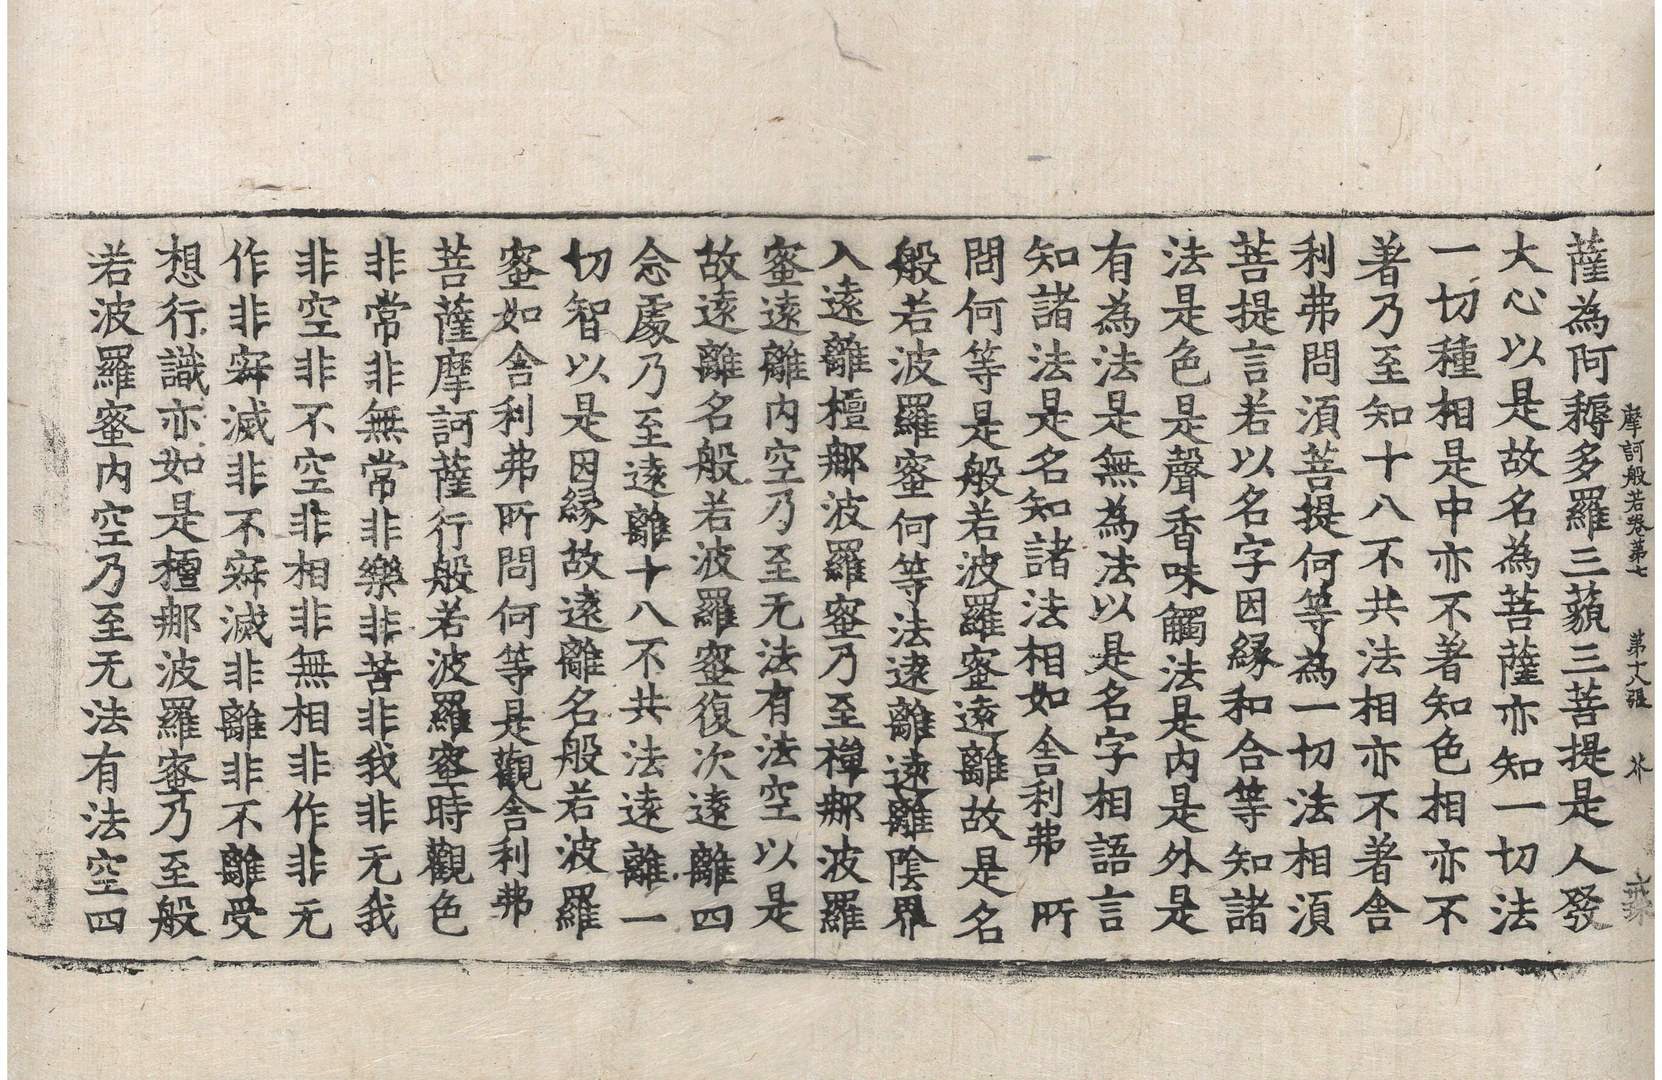 摩訶般若卷第七　第十八張　芥
薩為阿耨多羅三藐三菩提是人發
大心以是故名為菩薩亦知一切法
一切種相是中亦不著知色相亦不
著乃至知十八不共法相亦不著舍
利弗問須菩提何等為一切法相須
菩提言若以名字因緣和合等知諸
法是色是聲香味觸法是内是外是
有為法是無為法以是名字相語言
知諸法是名知諸法相如舍利弗所
問何等是般若波羅蜜遠離故是名
般若波羅蜜何等法遠離遠離陰界
入遠離檀那波羅蜜乃至禪那波羅
蜜遠離内空乃至无法有法空以是
故遠離名般若波羅蜜復次遠離四
念處乃至遠離十八不共法遠離一
切智以是因緣故遠離名般若波羅
蜜如舍利弗所問何等是觀舍利弗
菩薩摩訶薩行般若波羅蜜時觀色
非常非無常非樂非苦非我非无我
非空非不空非相非無相非作非无
作非寂滅非不寂滅非離非不離受
想行識亦如是檀那波羅蜜乃至般
若波羅蜜内空乃至无法有法空四